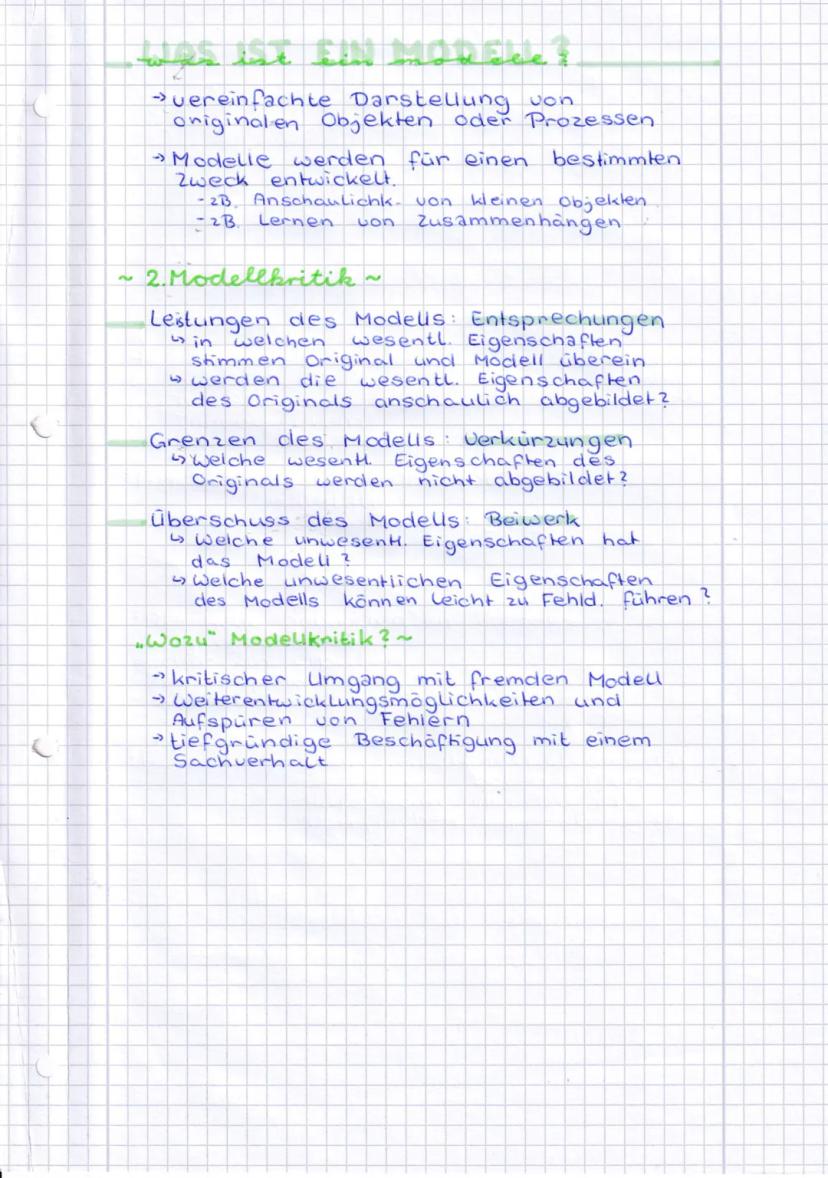 WAS IST EIN MODELL?
was ist ein modell?
→ vereinfachte Darstellung von
originalen Objekten oder Prozessen
→ Modelle werden für einen bestimmten
Zweck entwickelt.
- zB. Anschaulichk. von kleinen Objekten
- zB. Lernen von Zusammenhängen
~ 2. Modellkritik ~
Leistungen des Modells: Entsprechungen
↳ in welchen wesentl. Eigenschaften
stimmen Original und Modell überein
↳ werden die wesentl. Eigenschaften
des Originals anschaulich abgebildet?
Grenzen des Modells: Verkürzungen
↳ Welche wesentl. Eigenschaften des
Originals werden nicht abgebildet?
Überschuss des Modells: Beiwerk
↳ Welche unwesentl. Eigenschaften hat
das Modell?
↳ Welche unwesentlichen Eigenschaften
des Modells können leicht zu Fehld. führen?
„Wozu" Modellkritik? ~
→ kritischer Umgang mit fremden Modell
→ Weiterentwicklungsmöglichkeiten und
Aufspüren von Fehlern
→ tiefgründige Beschäftigung mit einem
Sachverhalt